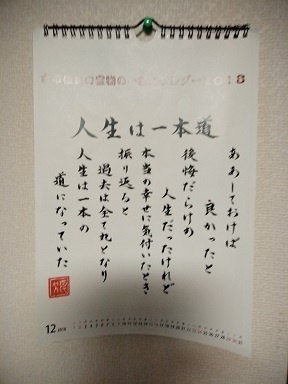 人生は一本道
ああしておけば
良かったと
後悔だらけの
人生だったけれど
本当の幸せに気付いたとき
振り返ると
過去は全て礼となり
人生は一本の
道になっていた
12 2018